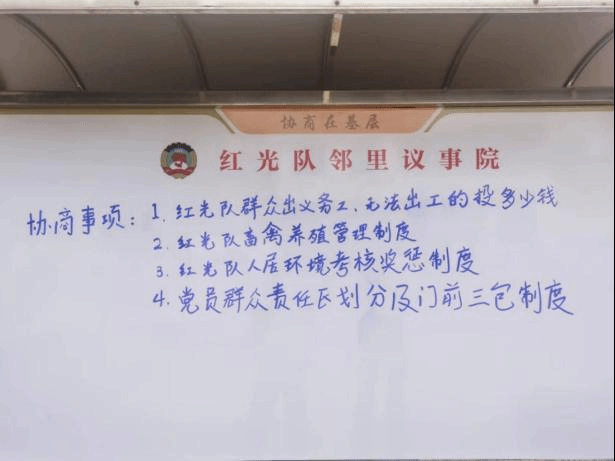 协商在基层
红光队邻里议事院
协商事项：1. 红光队群众出义务工、无法出工的投多少钱
2. 红光队畜禽养殖管理制度
3. 红光队人居环境考核奖惩制度
4. 党员群众责任区划分及门前三包制度